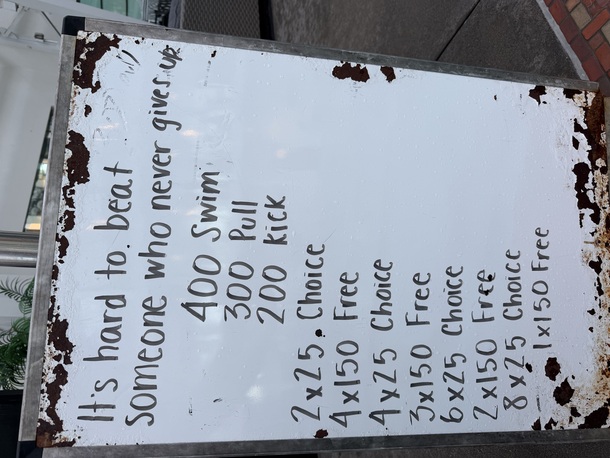 It's hard to beat
someone who never gives up
400 Swim
300 Pull
200 Kick
2x25 Choice
4x150 Free
4x25 Choice
3x150 Free
6x25 Choice
2x150 Free
8x25 Choice
1x150 Free